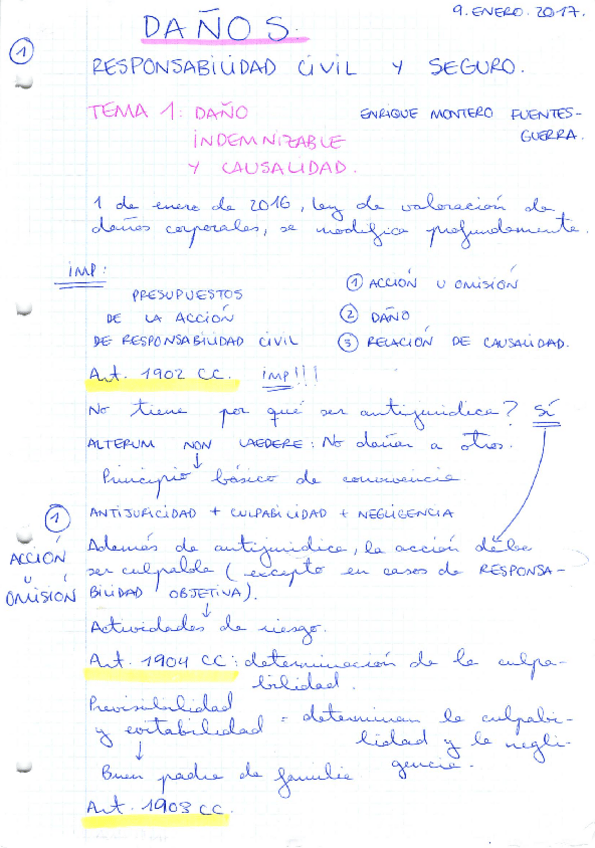 9. ENERO. 2017.
1
DAÑOS.
RESPONSABILIDAD CIVIL Y SEGURO.
TEMA 1: DAÑO
INDEMNIZABLE
Y CAUSALIDAD.
ENRIQUE MONTERO FUENTES-
GUERRA.
1 de enero de 2016, ley de valoración de
daños corporales, se modifica profundamente.
IMP:
PRESUPUESTOS
DE LA ACCIÓN
DE RESPONSABILIDAD CIVIL
1 ACCIÓN U OMISIÓN
2 DAÑO
3 RELACIÓN DE CAUSALIDAD.
Art. 1902 CC. IMP!!!
No tiene por qué ser antijurídica? SÍ
ALTERUM NON LAEDERE: No dañar a otros.
↓
Principio básico de convivencia
1
ACCIÓN
U
OMISIÓN
ANTIJURICIDAD + CULPABILIDAD + NEGLIGENCIA
Además de antijurídica, la acción debe
ser culpable (excepto en casos de RESPONSA-
BILIDAD OBJETIVA).
↓
Actividades de riesgo.
Art. 1904 CC: determinación de la culpa-
bilidad.
Previsibilidad
y evitabilidad = determinan la culpabi-
lidad y la negli-
gencia.
↓
Buen padre de familia
Art. 1903 CC.